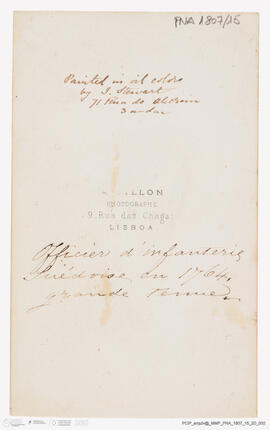 PNA 1807/15
Painted in oil colors
by J. Stewart
71 Rua do Alecrim
PHOTOGRAPHE
9, Rua das Chagas
LISBOA
Officier d'infanterie
Suédoise en 1764
grande tenue
PCIP_arquivo@_MMP_PNA_1807_15_2D_002